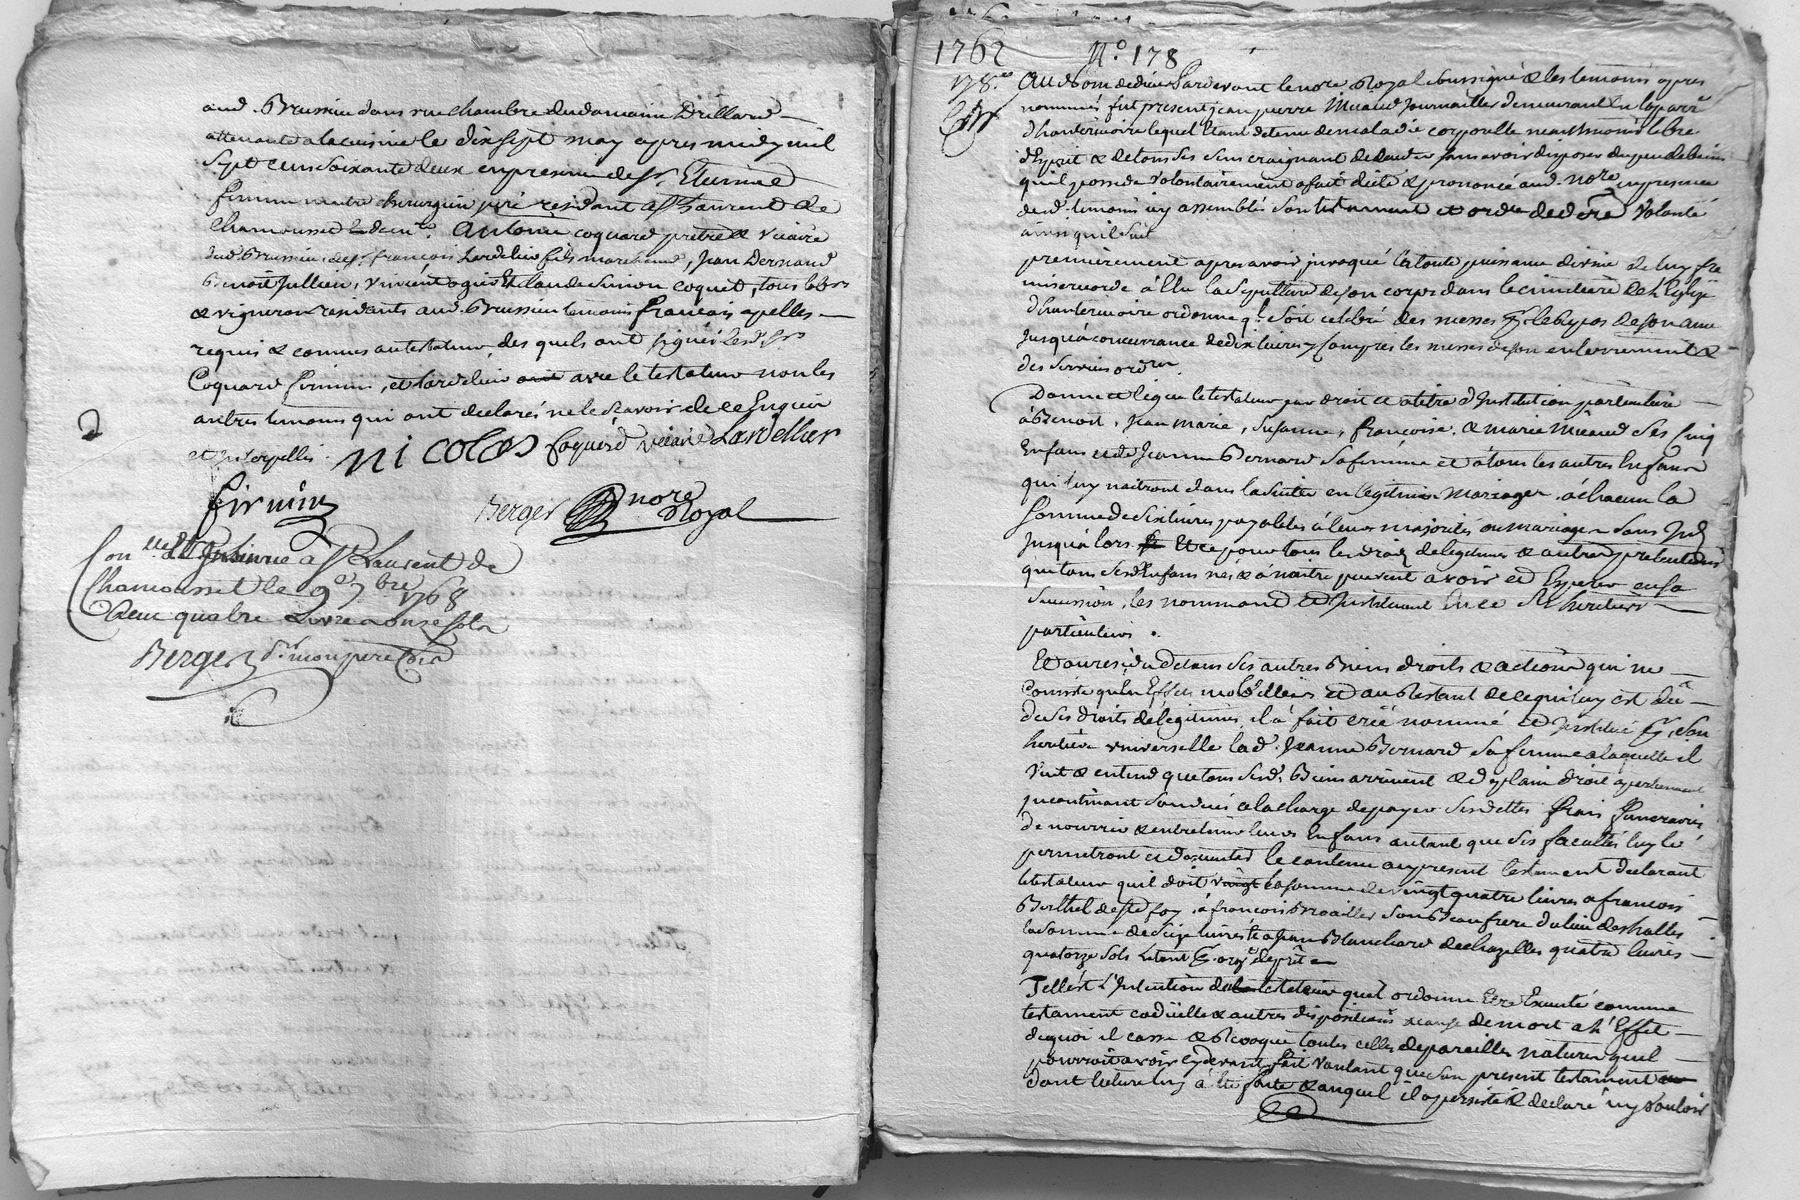 aud. Brussieu dans une chambre du domaine Drillard
attenante a la cuisine le dixsept may apres midy mil
sept cens soixante deux en presence de Sr. Etienne
firmin maitre chirurgien juré residant a St Laurent de
Chamousset Antoine coquard pretre & vicaire
dud. Brussieu, de Sr. françois Lardelier fils marchand, Jean Bernard
Benoit Jullien, vincent et claude Simon coquet, tous
& vignerons residants aud. Brussieu temoins francois apelles
requis & connus au testateur, des quels ont signé lesd. Srs
Coquard firmin, et Lardelier avec le testateur non les
autres temoins qui ont declarés ne le scavoir de ce Enquis
et interpellés.
nicolas Coquard vicaire Lardellier
firmin
Berger nore Royal
Con.lle et Insinué a St Laurent de
Chamousset le 9e 7bre 1768
Receu quatre Livre onse sols
Berger pr. mon pere
1762 No. 178
178.e Au Nom de dieu Pardevant le nore Royal soussigné & les temoins apres
nommés fut present jean pierre Micaud journailler demeurant en la parr.
d'hauterivoire lequel Etant detenu de maladie corporelle neantmoins libre
d'Esprit & de tous ses sens craignant de deceder sans avoir disposer du peu de biens
quil possede volontairement a fait dicté & prononcé aud. nore en presence
desd. temoins icy assemblés son testament et ordre de dere volonté
ainsi quil suit
premierement apres avoir invoqué la toute puissance divine de luy fre
misericorde à Elu la sepulture de son corps dans le cimetiere de L'Eglise
d'hauterivoire ordonne ql. soit celebré des messes pr. le Repos de son ame
jusqu'a concurrance de dix livres y compres les messes de son enterrement &
des services ordres.
Donne et legue le testateur par droit et a titre d'Institution particuliere
à Benoit, jean marie, Susanne, françoise, & marie Micaud ses Cinq
Enfans et de Jeanne Bernard sa femme et à tous les autres Enfans
qui luy naitront dans la suitte en legitimes mariages, à chacun la
somme de six livres payables à leurs majorités ou mariages sans Int.
jusqu'a lors Et ce pour tous les droits de legitimes & autres pretentions
que tous sesd. Enfans nés & à naitre peuvent avoir et Esperer en sa
succession, les nommant et Instituant En ce ses heritiers
particuliers.
Et au residu de tous ses autres Biens droits & actions qui ne
Consiste qu'en Effets mobilliers et au Restant de ce qui luy est dû
de ses droits de legitimes, il à fait créé nommé et institué pr. son
heritiere universelle lad. Jeanne Bernard sa femme a laquelle il
veut & entend que tous sesd. Biens arrivent & de plain droit apartiennent
incontinant son decés a la charge de payer ses dettes frais funeraires
de nourrir & entretenir leurs Enfans autant que ses facultés luy le
permetront et d'executer le contenu au present testament declarant
le testateur quil doit la somme de vingt quatre livres a francois
Berthet de Ste foy, à françois Broailler son Beaufrere du lieu des halles
la somme de seize livres & a jean Blanchard de chazelles quatre livres
quatorze sols Letout pr. arg.t de prêt
Tell'est L'Intention du testateur quil ordonne Etre Executé comme
testament codicille & autres dispositions a cause de mort a L'Effet
de quoi il casse & Revoque toutes celles de pareilles natures quil
pourroit avoir cydevant fait voulant que son present testament
dont lecture luy à été faite & auquel il a persisté & declaré icy vouloir